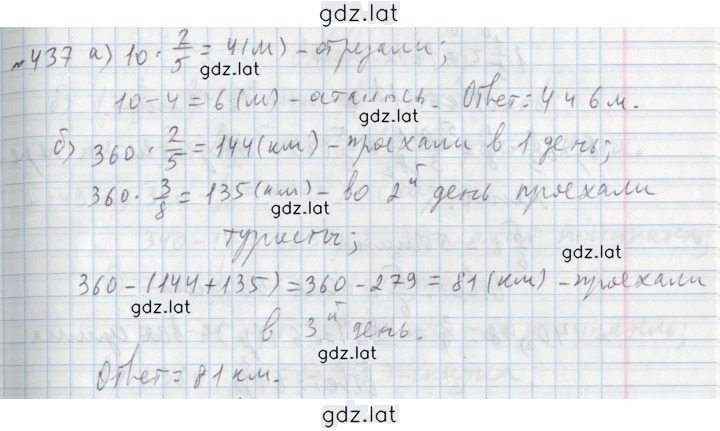 gdz.lat
№437 а) 10 · 2/5 = 4(м) – отрезали;
gdz.lat
10 – 4 = 6 (м) – осталось. Ответ: 4 и 6 м.
б) 360 · 2/5 = 144(км) – проехали в 1 день;
360 · 3/8 = 135(км) – во 2й день проехали
gdz.lat
туристы;
gdz.lat
360 – (144 + 135) = 360 – 279 = 81 (км) – проехали
gdz.lat
в 3й день.
gdz.lat
Ответ: 81 км.
gdz.lat